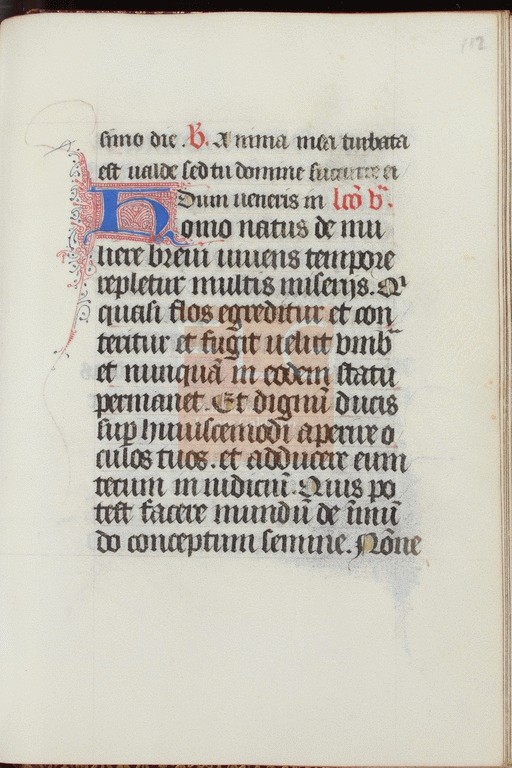 112
simo die. V. Anima mea turbata
est ualde sed tu domine succurre ei
Dum ueneris in lcō v.
Homo natus de mu
liere breui uiuens tempore
repletur multis miserijs. Qi
quasi flos egreditur et con
teritur et fugit uelut vmb
et nunquā in eodem statu
permanet. Et dignū ducis
sup huiuscemodi aperire o
culos tuos. et adducere eum
tecum in iudiciū. Quis po
test facere mundū de īmū
do conceptum semine. Nōne